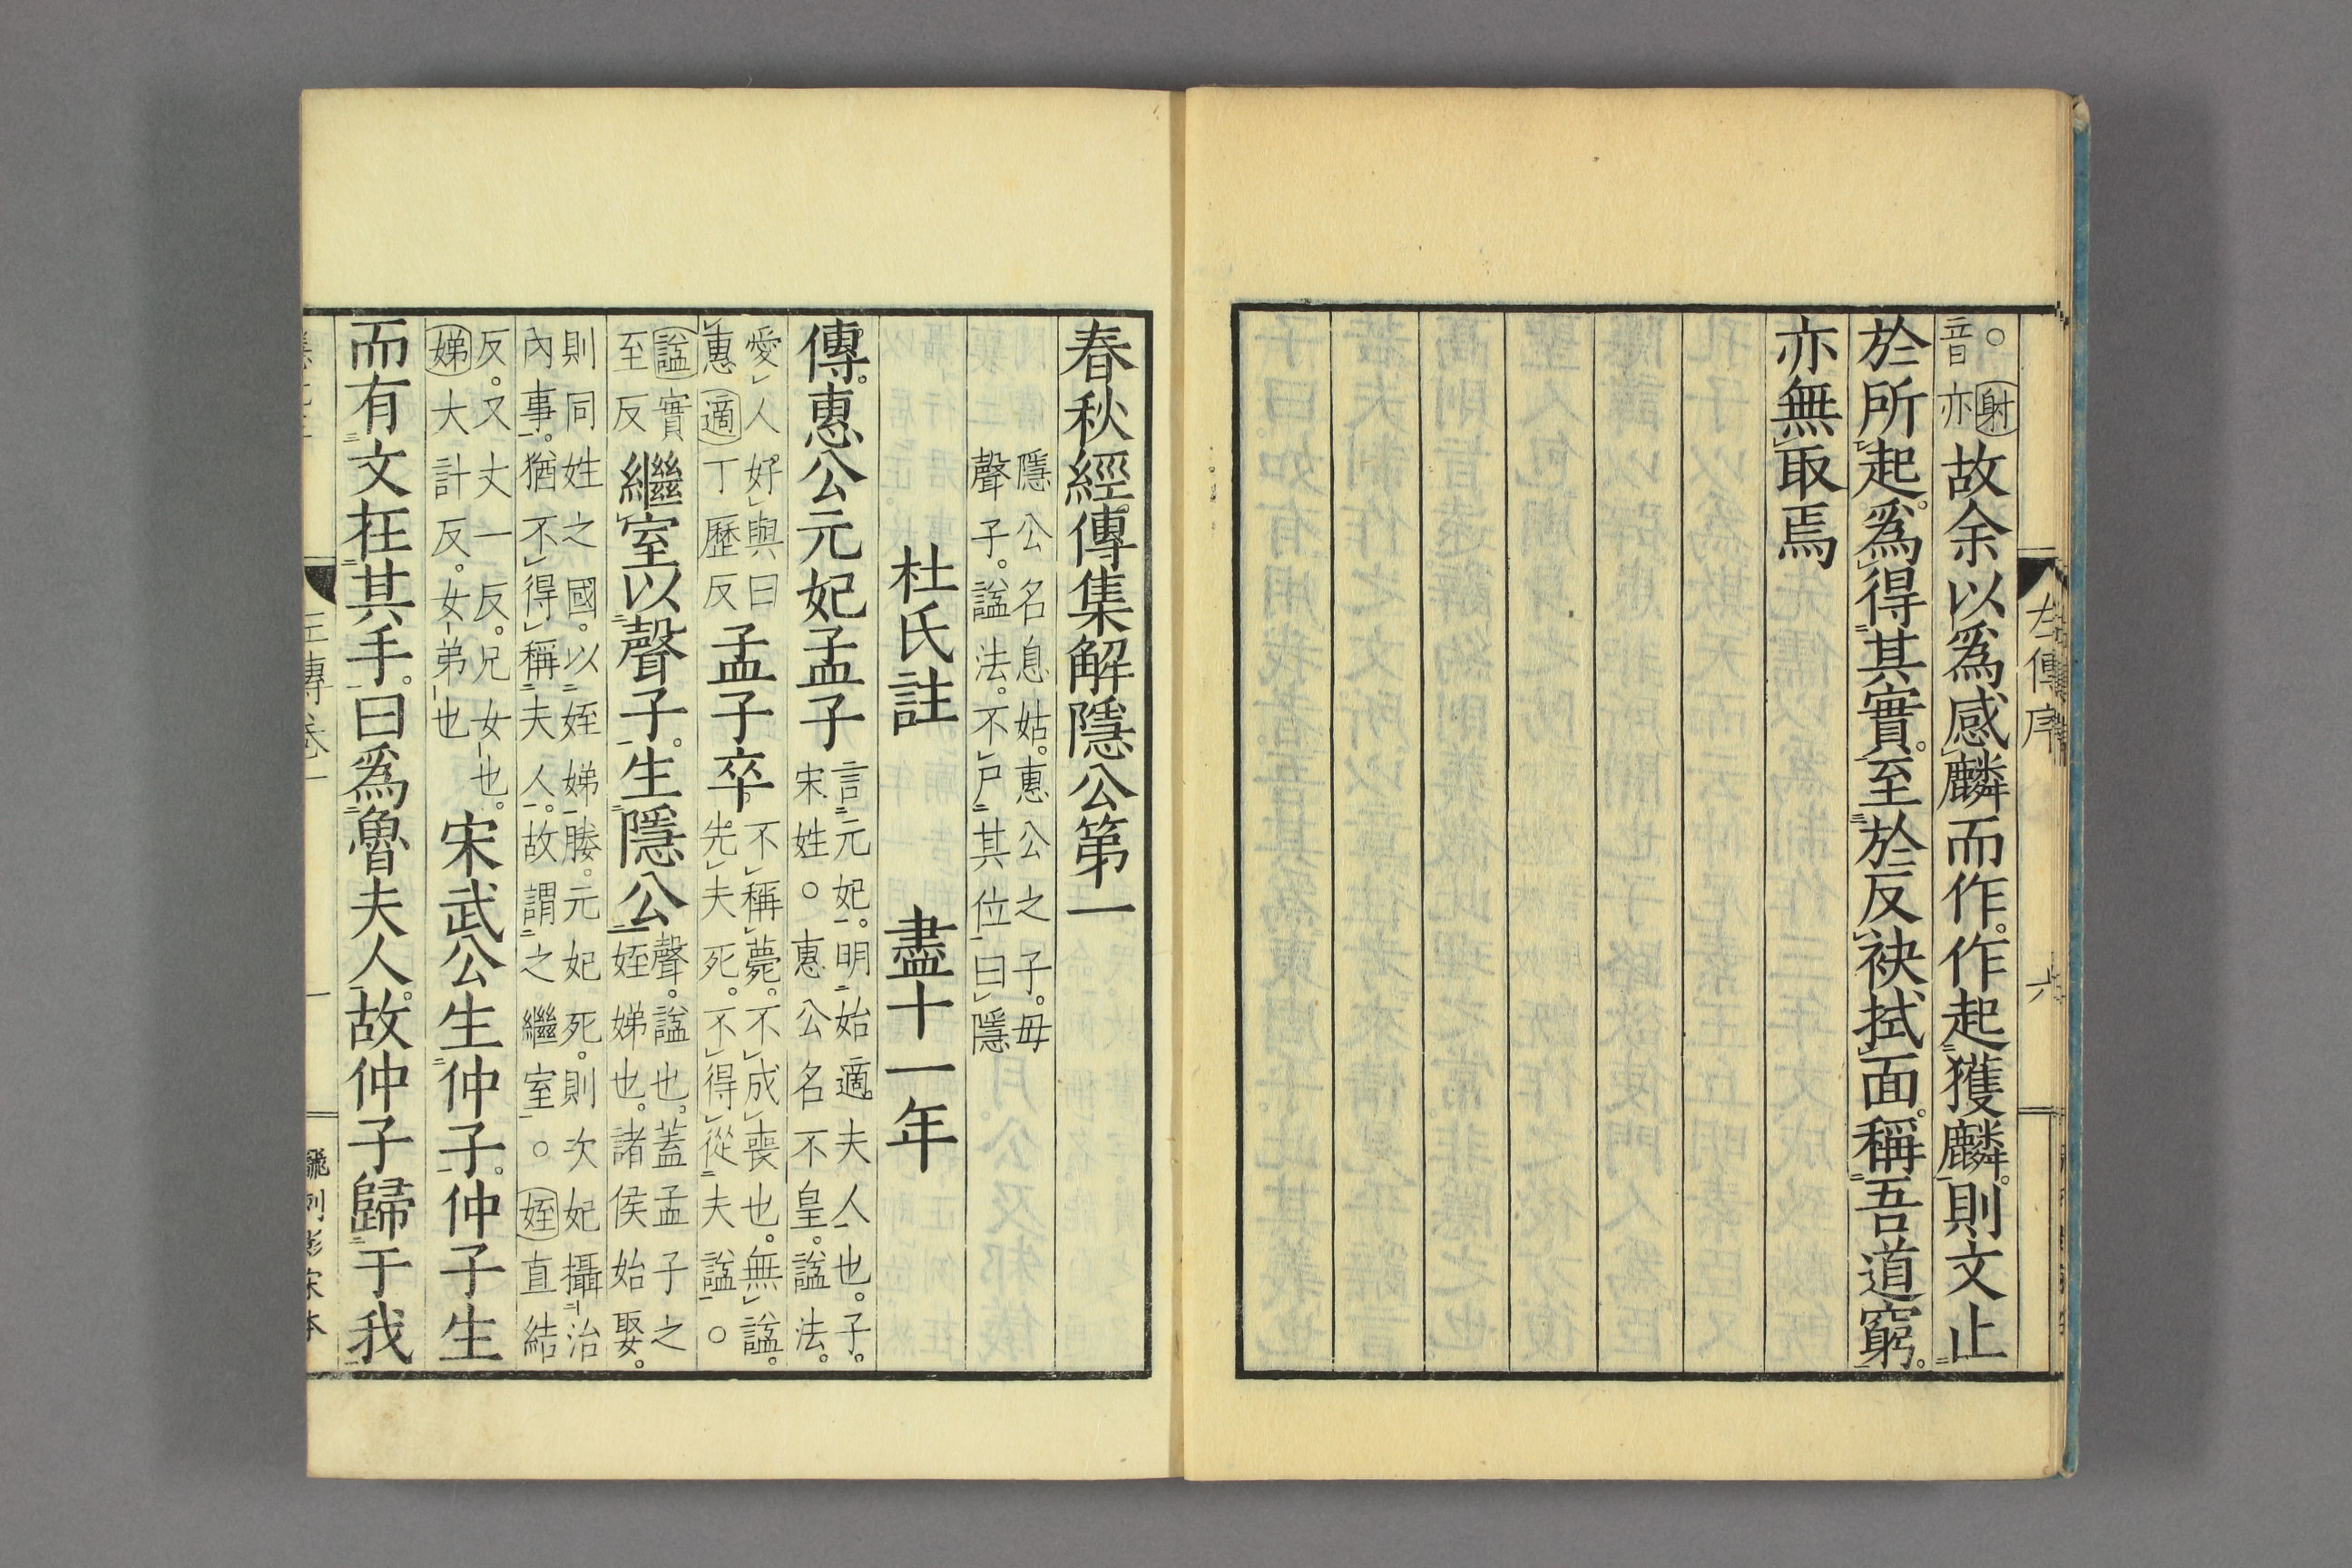 左傳序
六
○射
音亦
故余以爲感麟而作。作起獲麟。則文止
於所起。爲得其實。至於反袂拭面。稱吾道窮。
亦無取焉
春秋經傳集解隱公第一
隱公名息姑。惠公之子。母
聲子。諡法。不尸其位曰隱
杜氏註 盡十一年
傳。惠公元妃孟子
言元妃。明始適夫人也。子。
宋姓。○惠公名不皇。諡法。
愛人好與曰
惠適丁歷反
孟子卒。
不稱薨。不成喪也。無諡。
先夫死。不得從夫諡。○
諡實
至反
繼室以聲子。生隱公
聲。諡也。蓋孟子之
姪娣也。諸侯始娶。
則同姓之國。以姪娣媵。元妃死。則次妃攝治
內事。猶不得稱夫人。故謂之繼室。○姪直結
反。又丈一反。兄女也。
娣大計反。女弟也
宋武公生仲子。仲子生
而有文在其手。曰爲魯夫人。故仲子歸于我
左傳卷一
一